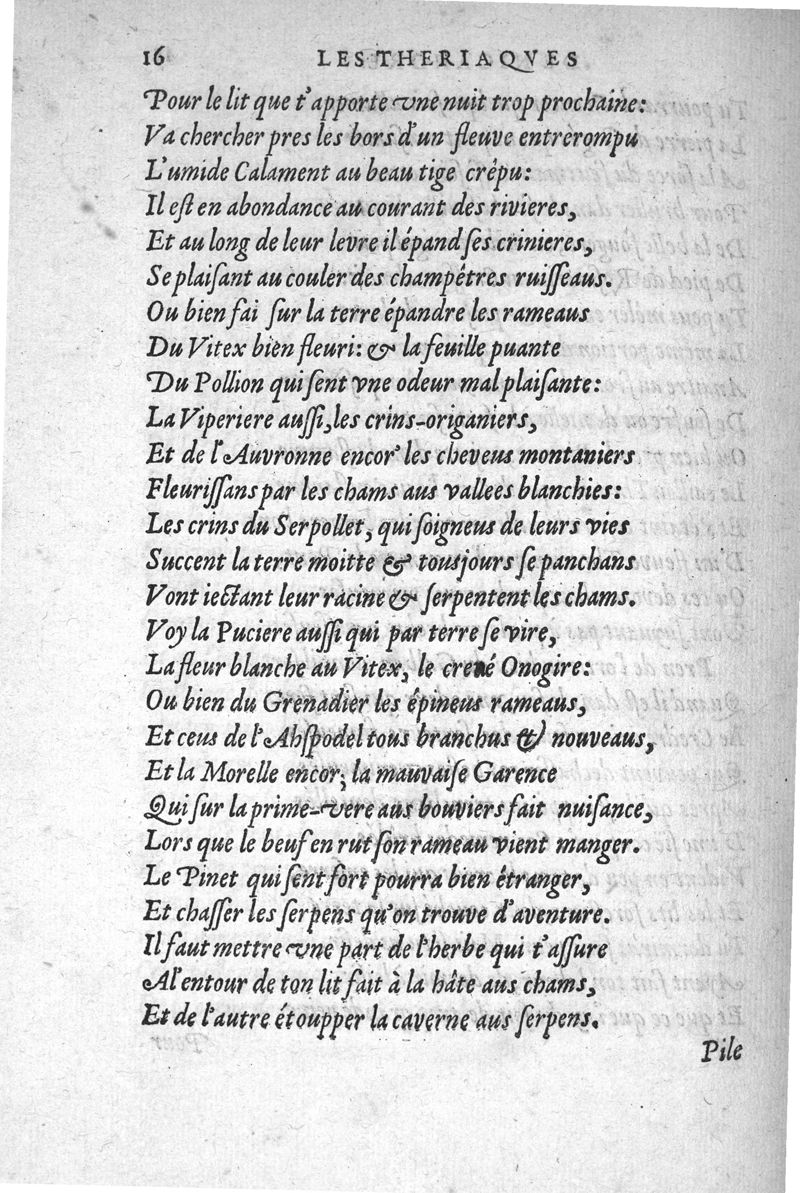 16 LES THERIAQVES
Pour le lit que t'apporte vne nuit trop prochaine:
Va chercher pres les bors d'un fleuve entrerompu
L'umide Calament au beau tige crêpu:
Il eſt en abondance au courant des rivieres,
Et au long de leur levre il épand ſes crinieres,
Se plaiſant au couler des champêtres ruiſſeaus.
Ou bien fai ſur la terre épandre les rameaus
Du Vitex bien fleuri: & la feuille puante
Du Pollion qui ſent vne odeur mal plaiſante:
La Viperiere auſſi, les crins-origaniers,
Et de l'Auvronne encor' les cheveus montaniers
Fleuriſſans par les chams aus vallees blanchies:
Les crins du Serpollet, qui ſoigneus de leurs vies
Succent la terre moitte & tousjours ſe panchans
Vont iectant leur racine & ſerpentent les chams.
Voy la Puciere auſſi qui par terre ſe vire,
La fleur blanche au Vitex, le crené Onogire:
Ou bien du Grenadier les épineus rameaus,
Et ceus de l'Ahſpodel tous branchus & nouveaus,
Et la Morelle encor; la mauvaiſe Garence
Qui ſur la prime-vere aus bouviers fait nuiſance,
Lors que le beuf en rut ſon rameau vient manger.
Le Pinet qui ſent fort pourra bien étranger,
Et chaſſer les ſerpens qu'on trouve d'aventure.
Il faut mettre vne part de l'herbe qui t'aſſure
Al'entour de ton lit fait à la hâte aus chams,
Et de l'autre étoupper la caverne aus ſerpens.
Pile